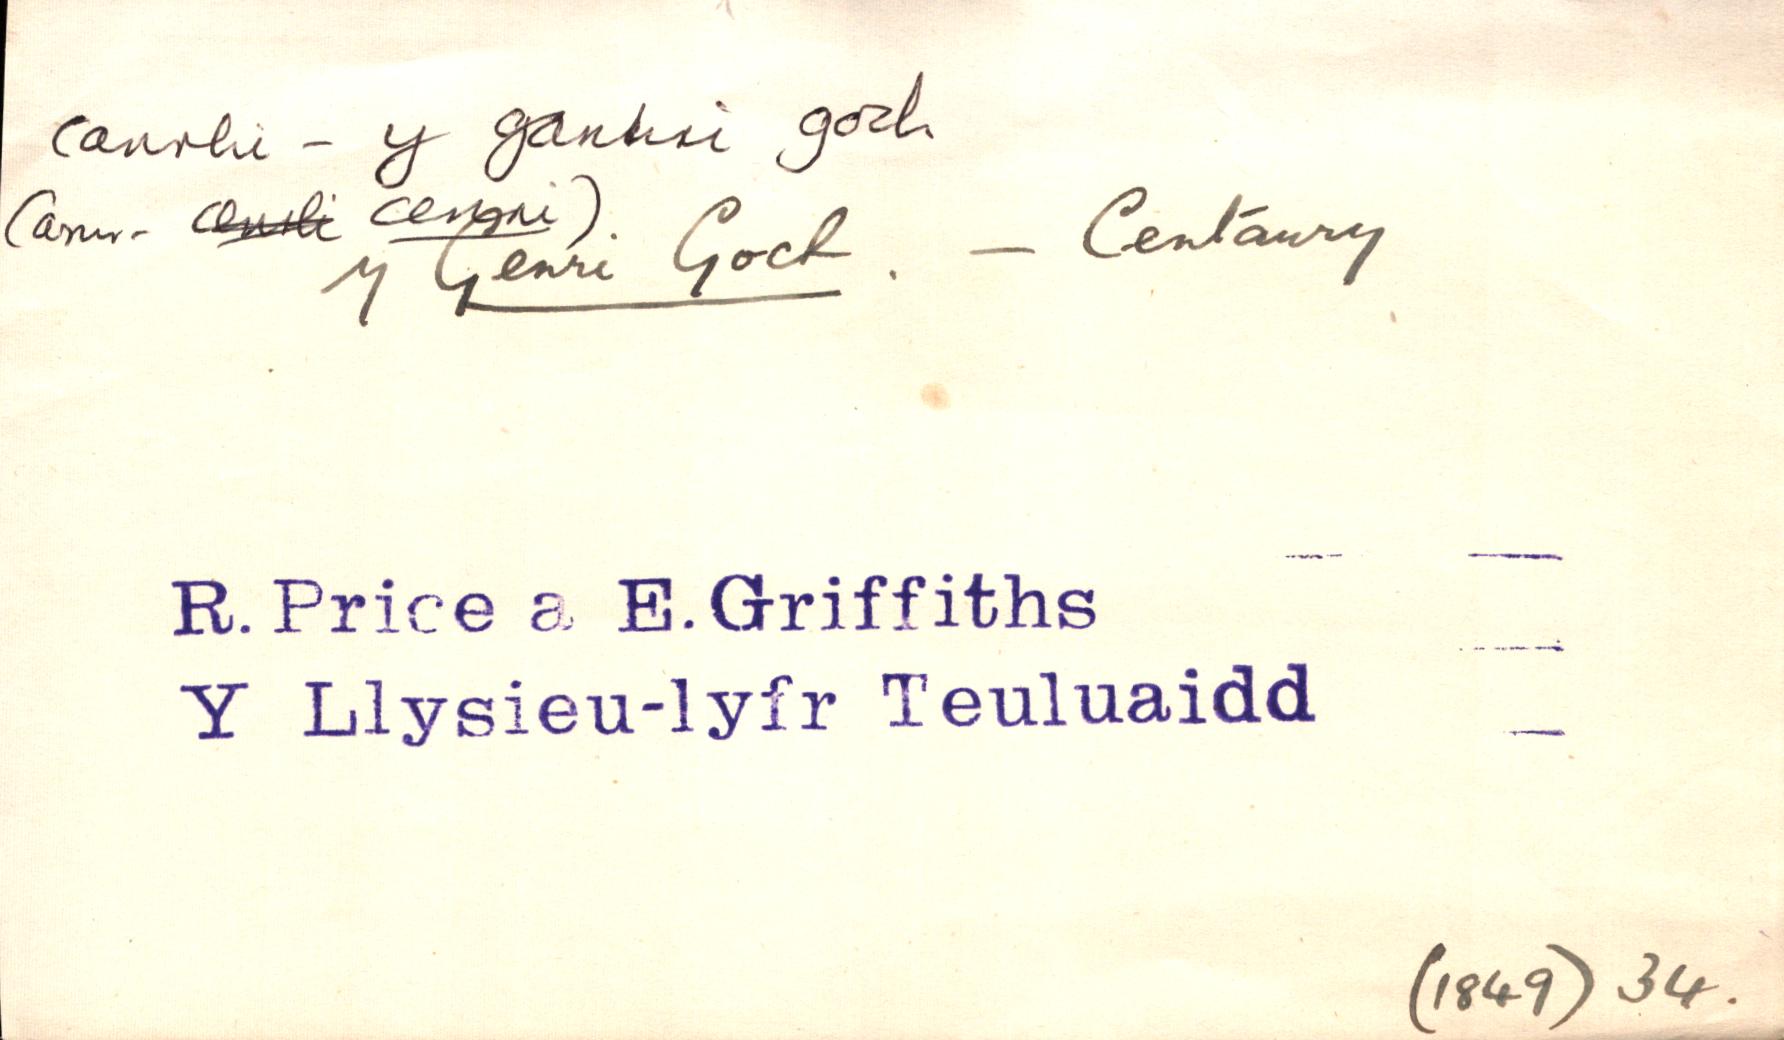 canrhi - y ganrhi goch
(amr. - cenrhi cenri)
y Genri Goch. - Centaury
R. Price a E. Griffiths
Y Llysieu-lyfr Teuluaidd
(1849) 34.